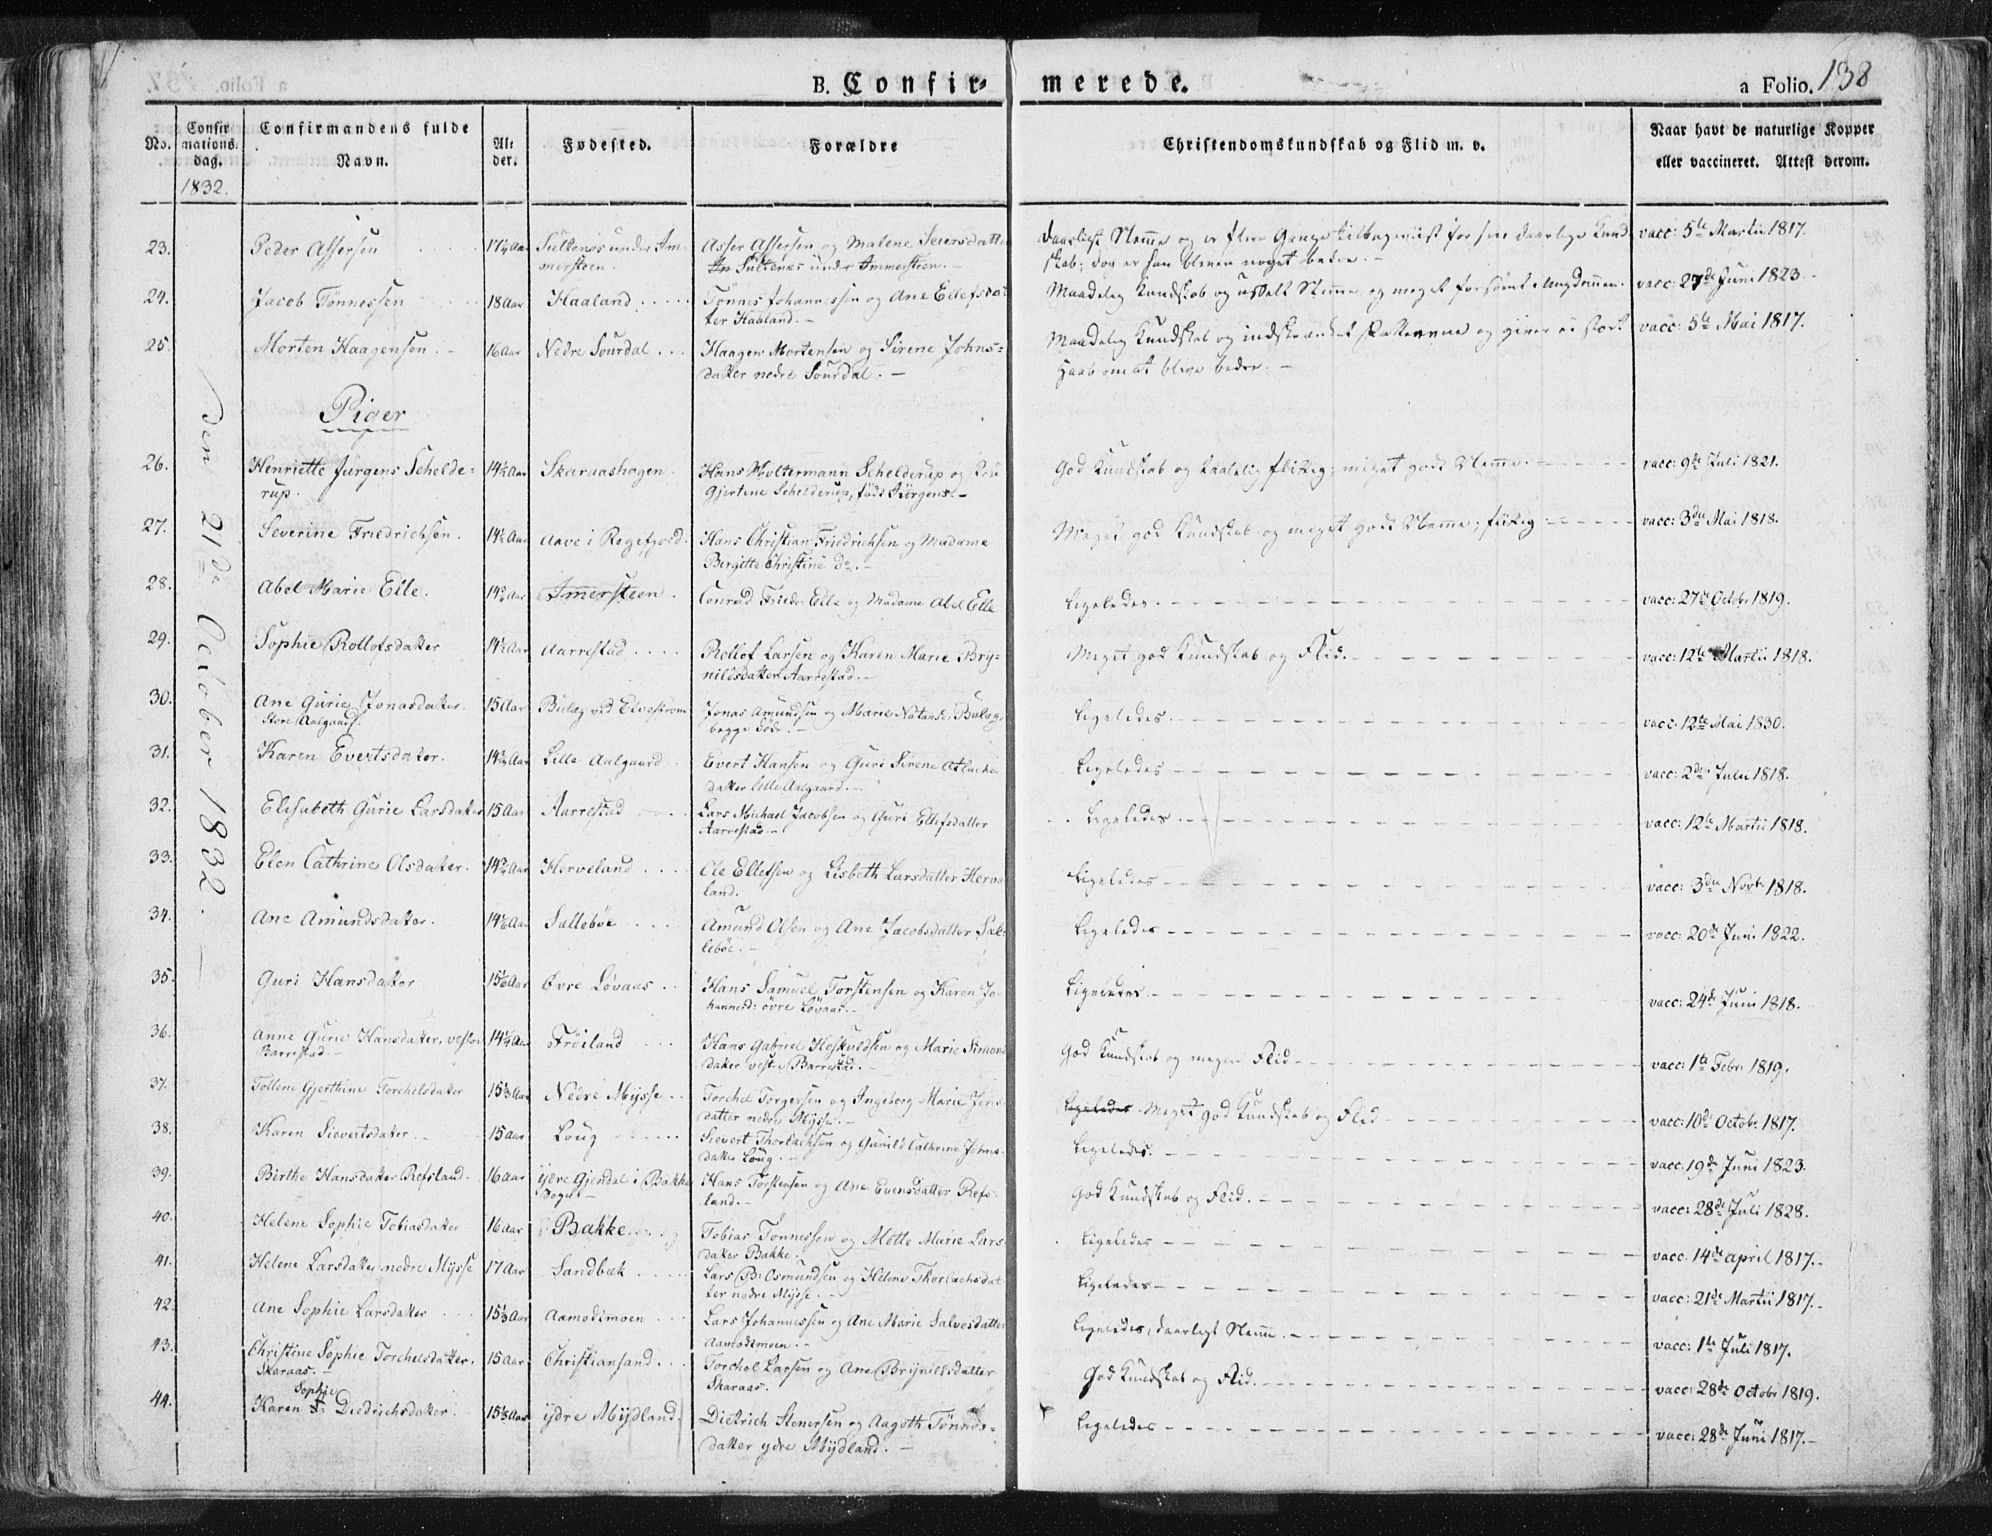 B. Confir-
merede.
a Folio. 138
No.
Confir
mations-
dag.
1832.
Confirmandens fulde
Navn.
Al-
der.
Fødested.
Forældre
Christendomskundskab og Flid m. v.
Naar havt de naturlige Kopper
eller vaccineret. Attest derom.
den 21de October 1832.
23. Peder Assersen 17¼ Aar Sultenes under Im- Asser Assersen og Malene Seiersdatter daarligt Nemme og er flere Gange tilbageviist for sine daarlige Kund vacc: 5te Martii 1817.
mersteen. Sultenes under Immersteen. skab; dog er han bleven noget bedre.
24. Jacob Tønnessen 18 Aar Haaland Tønnes Johannessen og Ane Ellefsdat Maadelig Kundskab og Nemme og meget forsømt i Ungdommen. vacc: 27de Juni 1823.
ter Haaland.
25. Morten Haagensen. 16 Aar Nedre Sourdal Haagen Mortensen og Sirene Johns= Maadelig Kundskab og indskrænket Fatteevne og giver ei stort vacc: 5te Mai 1817.
datter nedre Sourdal. Haab om at blive bedre.
Piger
26. Henriette Jürgens Schelde= 14½ Aar Skaraashagen. Hans Moltermann Schelderup og Fru God Kundskab og taalelig flittig; meget godt Nemme. vacc: 9de Juli 1821.
rup. Gjertine Schelderup, født Jürgens.
27. Severine Friedrichsen. 14½ Aar Aave i Rægefjord. Hans Christian Friedrichsen og Madame Meget god Kundskab og meget godt Nemme; flittig vacc: 3die Mai 1818.
Birgitte Christine do.
28. Abel Marie Elle. Aar Immersteen. Conrad Friedr. Elle og Madame Abel Elle Ligeledes. vacc: 27de Octobr 1819.
29. Sophie Rollofsdatter 14½ Aar Aarrestad Rollof Larsen og Karen Marie Bry= Meget god Kundskab og Flid. vacc: 12te Martii 1818.
nildsdatter Aarrestad.
30. Ane Gurie Jonasdatter. 15 Aar Bulæg ved Elvestrøm Jonas Amundsen og Marie Natansd: Bulæg, Ligeledes. vacc: 12te Mai 1830.
store Aalgaard. begge døde.
31. Karen Evertsdatter. 14¾ Aar Lille Aalgaard. Evert Hansen og Guri Sirene Atlachs Ligeledes vacc: 2den Julii 1818.
datter lille Aalgaard.
32. Elisabeth Gurie Larsdatter 15 Aar Aarrestad Lars Michael Jacobsen og Guri Ellefsdatter Ligeledes. vacc: 12te Martii 1818.
Aarrestad.
33. Elen Cathrine Olsdatter. 14¾ Aar Herveland Ole Ellefsen og Lisbeth Larsdatter Herve Ligeledes vacc: 3die Novbr 1818.
land.
34. Ane Amundsdatter. Aar Sallebøe Amund Olsen og Ane Jacobsdatter Sal= Ligeledes vacc: 20de Juni 1822.
lebøe.
35. Guri Hansdatter Aar Øvre Løvaas Hans Samuel Torstensen og Karen Jo Ligeledes vacc: 24de Juni 1818.
hannesd: øvre Løvaas.
36. Anne Gurie Hansdatter, vestre 14¼ Aar Frøiland Hans Gabriel Hoskuldsen og Marie Simons God Kundskab og megen Flid vacc: 1te Febr. 1819.
Barrestad datter vestre Barrestad.
37. Tollene Gjerthine Torchelsdatter 15⅓ Aar Nedre Mysse Torchel Torgersen og Ingeborg Marie Jens Ligeledes Meget god Kundskab og Flid vacc: 10de Octobr. 1817.
datter nedre Mysse.
38. Karen Sievertsdatter 15 Aar Loug Sievert Thorlachsen og Gunild Cathrine Johns Ligeledes. vacc: 19de Juni 1823.
datter Loug.
39. Birthe Hansdatter Refsland. 16 Aar ydre Gjendal i Bakke Hans Torstensen og Ane Evensdatter Refs= God Kundskab og Flid. vacc: 28de Juli 1828.
Sogn land.
40. Helene Sophie Tobiasdatter 16 Aar Bakke Tobias Tønnessen og Mette Marie Lars Ligeledes vacc: 14de April 1817.
datter Bakke.
41. Helene Larsdatter nedre Mysse 17 Aar Sandbæk Lars B: Osmundsen og Helene Thorlachsdat Ligeledes vacc: 21de Martii 1817.
ter nedre Mysse.
42. Ane Sophie Larsdatter 15⅓ Aar Aamodtmoen Lars Johannessen og Ane Marie Salvesdatter Ligeledes, daarligt Nemme. vacc: 1te Juli 1817.
Aamodtmoen.
43. Christine Sophie Torchelsdatter. 15 Aar Christiansand. Torchel Larsen og Ane Brynildsdatter God Kundskab og Flid. vacc: 28de Octobr 1819.
Skaraas. Skaraas.
Sophie
44. Karen Diedrichsdatter. 15⅓ Aar ydre Mydland. Dietrich Stenersen og Aagoth Tønnes= Ligeledes vacc: 28de Juni 1817.
datter ydre Mydland.